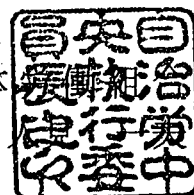 自治労中
央執行委
員長
働組